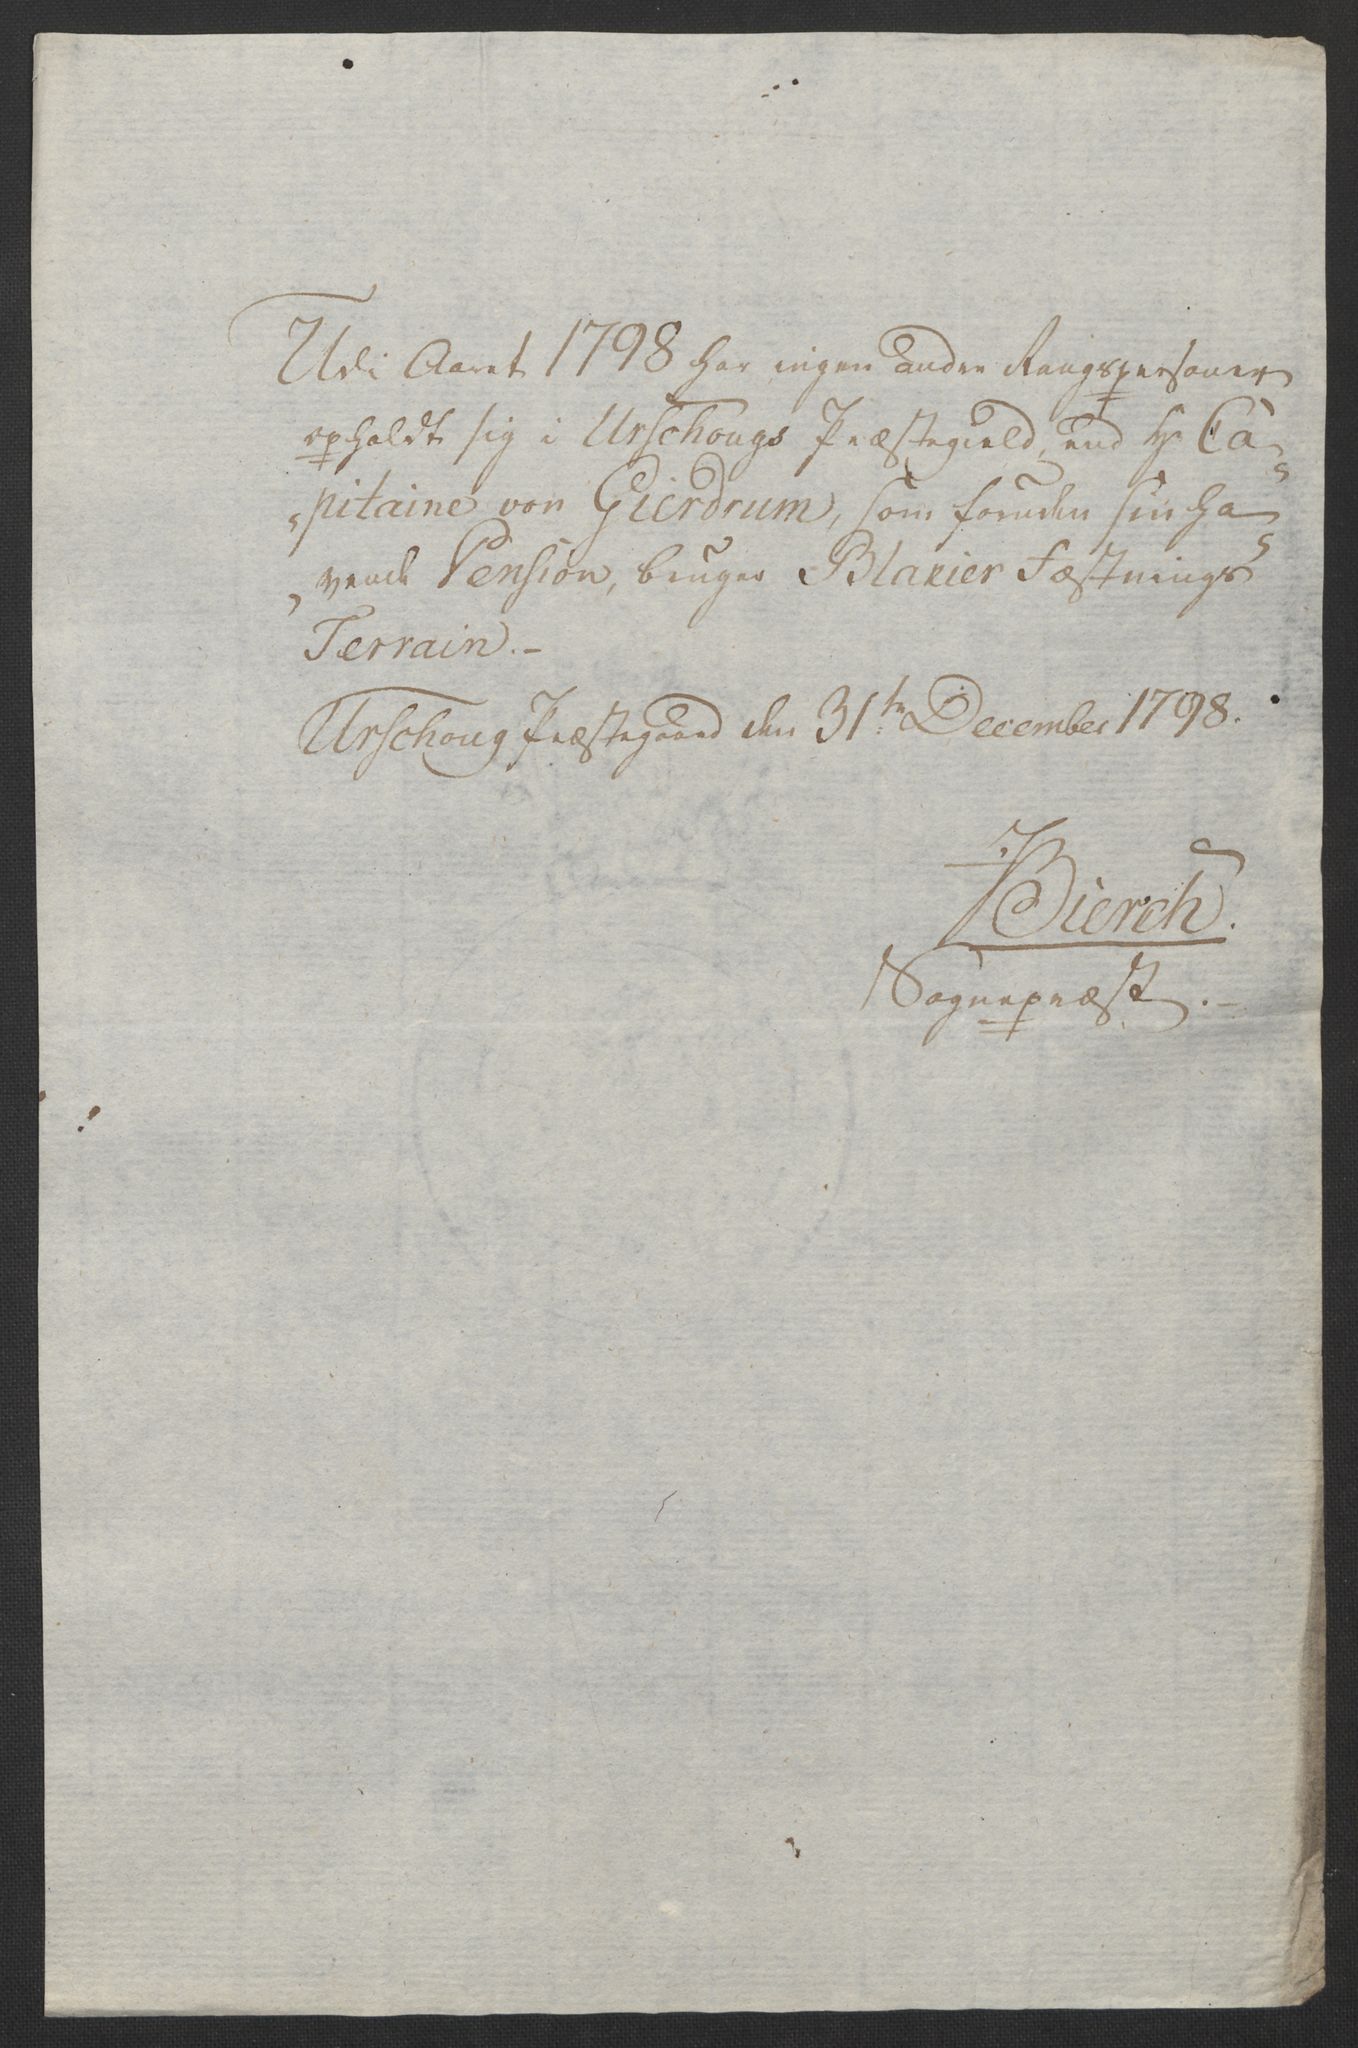 Udi Aaret 1798 har ingen anden Rangspersoner
opholdt sig i Urschougs Præstegield, end Hr Ca-
pitaine von Gierdrum, som foruden sin ha-
vende Pension, bruger Blakier Fæstnings
Terrain.-
Urschoug Præstegaard den 31te December 1798.
Bierch.
Sognepræst.-